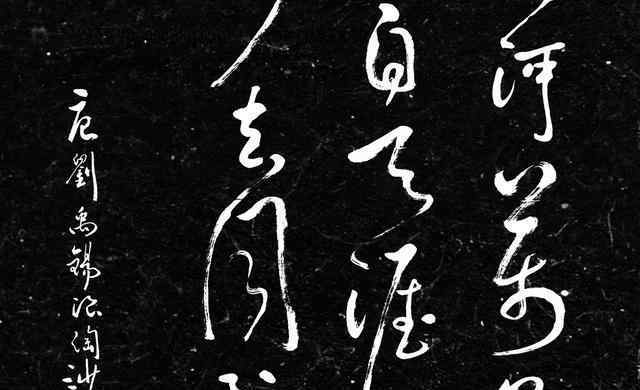 河萬
自天涯
去同
唐劉禹錫浪淘沙